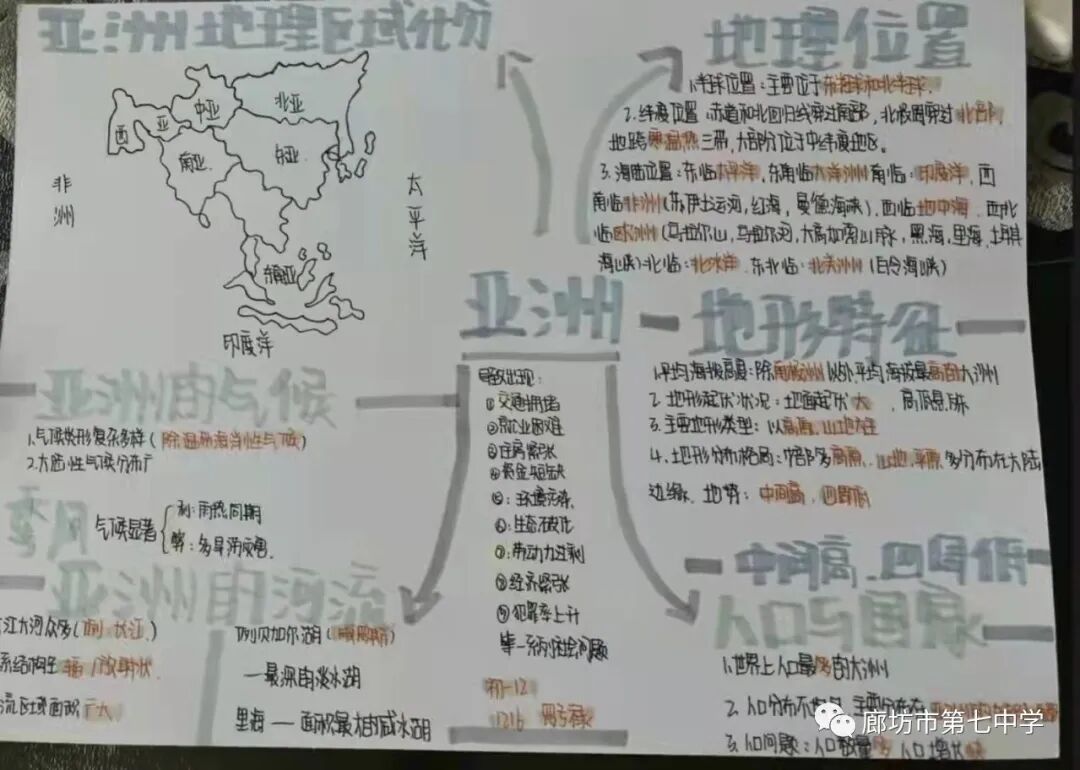 亚洲地理区域化分
西亚
中亚
北亚
南亚
东亚
东南亚
非洲
太平洋
印度洋
地理位置
1.半球位置：主要位于东半球和北半球.
2.纬度位置：赤道和北回归线穿过南部，北极圈穿过北部，
地跨寒温热三带，大部分位于中纬度地区。
3.海陆位置：东临太平洋，东南临大洋洲南临：印度洋，西
南临非洲（苏伊士运河，红海，曼德海峡），西临地中海，西北
临欧洲（乌拉尔山，乌拉尔河，大高加索山脉，黑海，里海，土耳其
海峡）北临：北冰洋 东北临：北美洲（白令海峡）
亚洲
地形特征
1.平均海拔高度：除南极洲以外，平均海拔最高的大洲
2.地形起伏状况：地面起伏大，高低悬殊
3.主要地形类型：以高原、山地为主
4.地形分布格局：中部多高原、山地，平原多分布在大陆
边缘、地势：中间高，四周低
中间高，四周低
亚洲的气候
1.气候类形复杂多样（除温带海洋性气候）
2.大陆性气候分布广
季风
气候显著
利：雨热同期
弊：多旱涝灾害.
导致出现：
①交通拥堵
②就业困难
③住房紧张
④资金短缺
⑤：环境污染
⑥：生态恶化
⑦：劳动力过剩
⑧经济紧张
⑨犯罪率上升
等一系列社会问题
初一12
1216
亚洲的河流
江大河众多（例：长江）
系结构呈辐（放射状
流区域面积广大
例贝加尔湖（
—最深的淡水湖
里海——面积最大的咸水湖
人口与国家
1.世界上人口最多的大洲
2.人口分布不均匀，主要分布在
3.人口问题：人口数量多 人口增长快
廊坊市第七中学